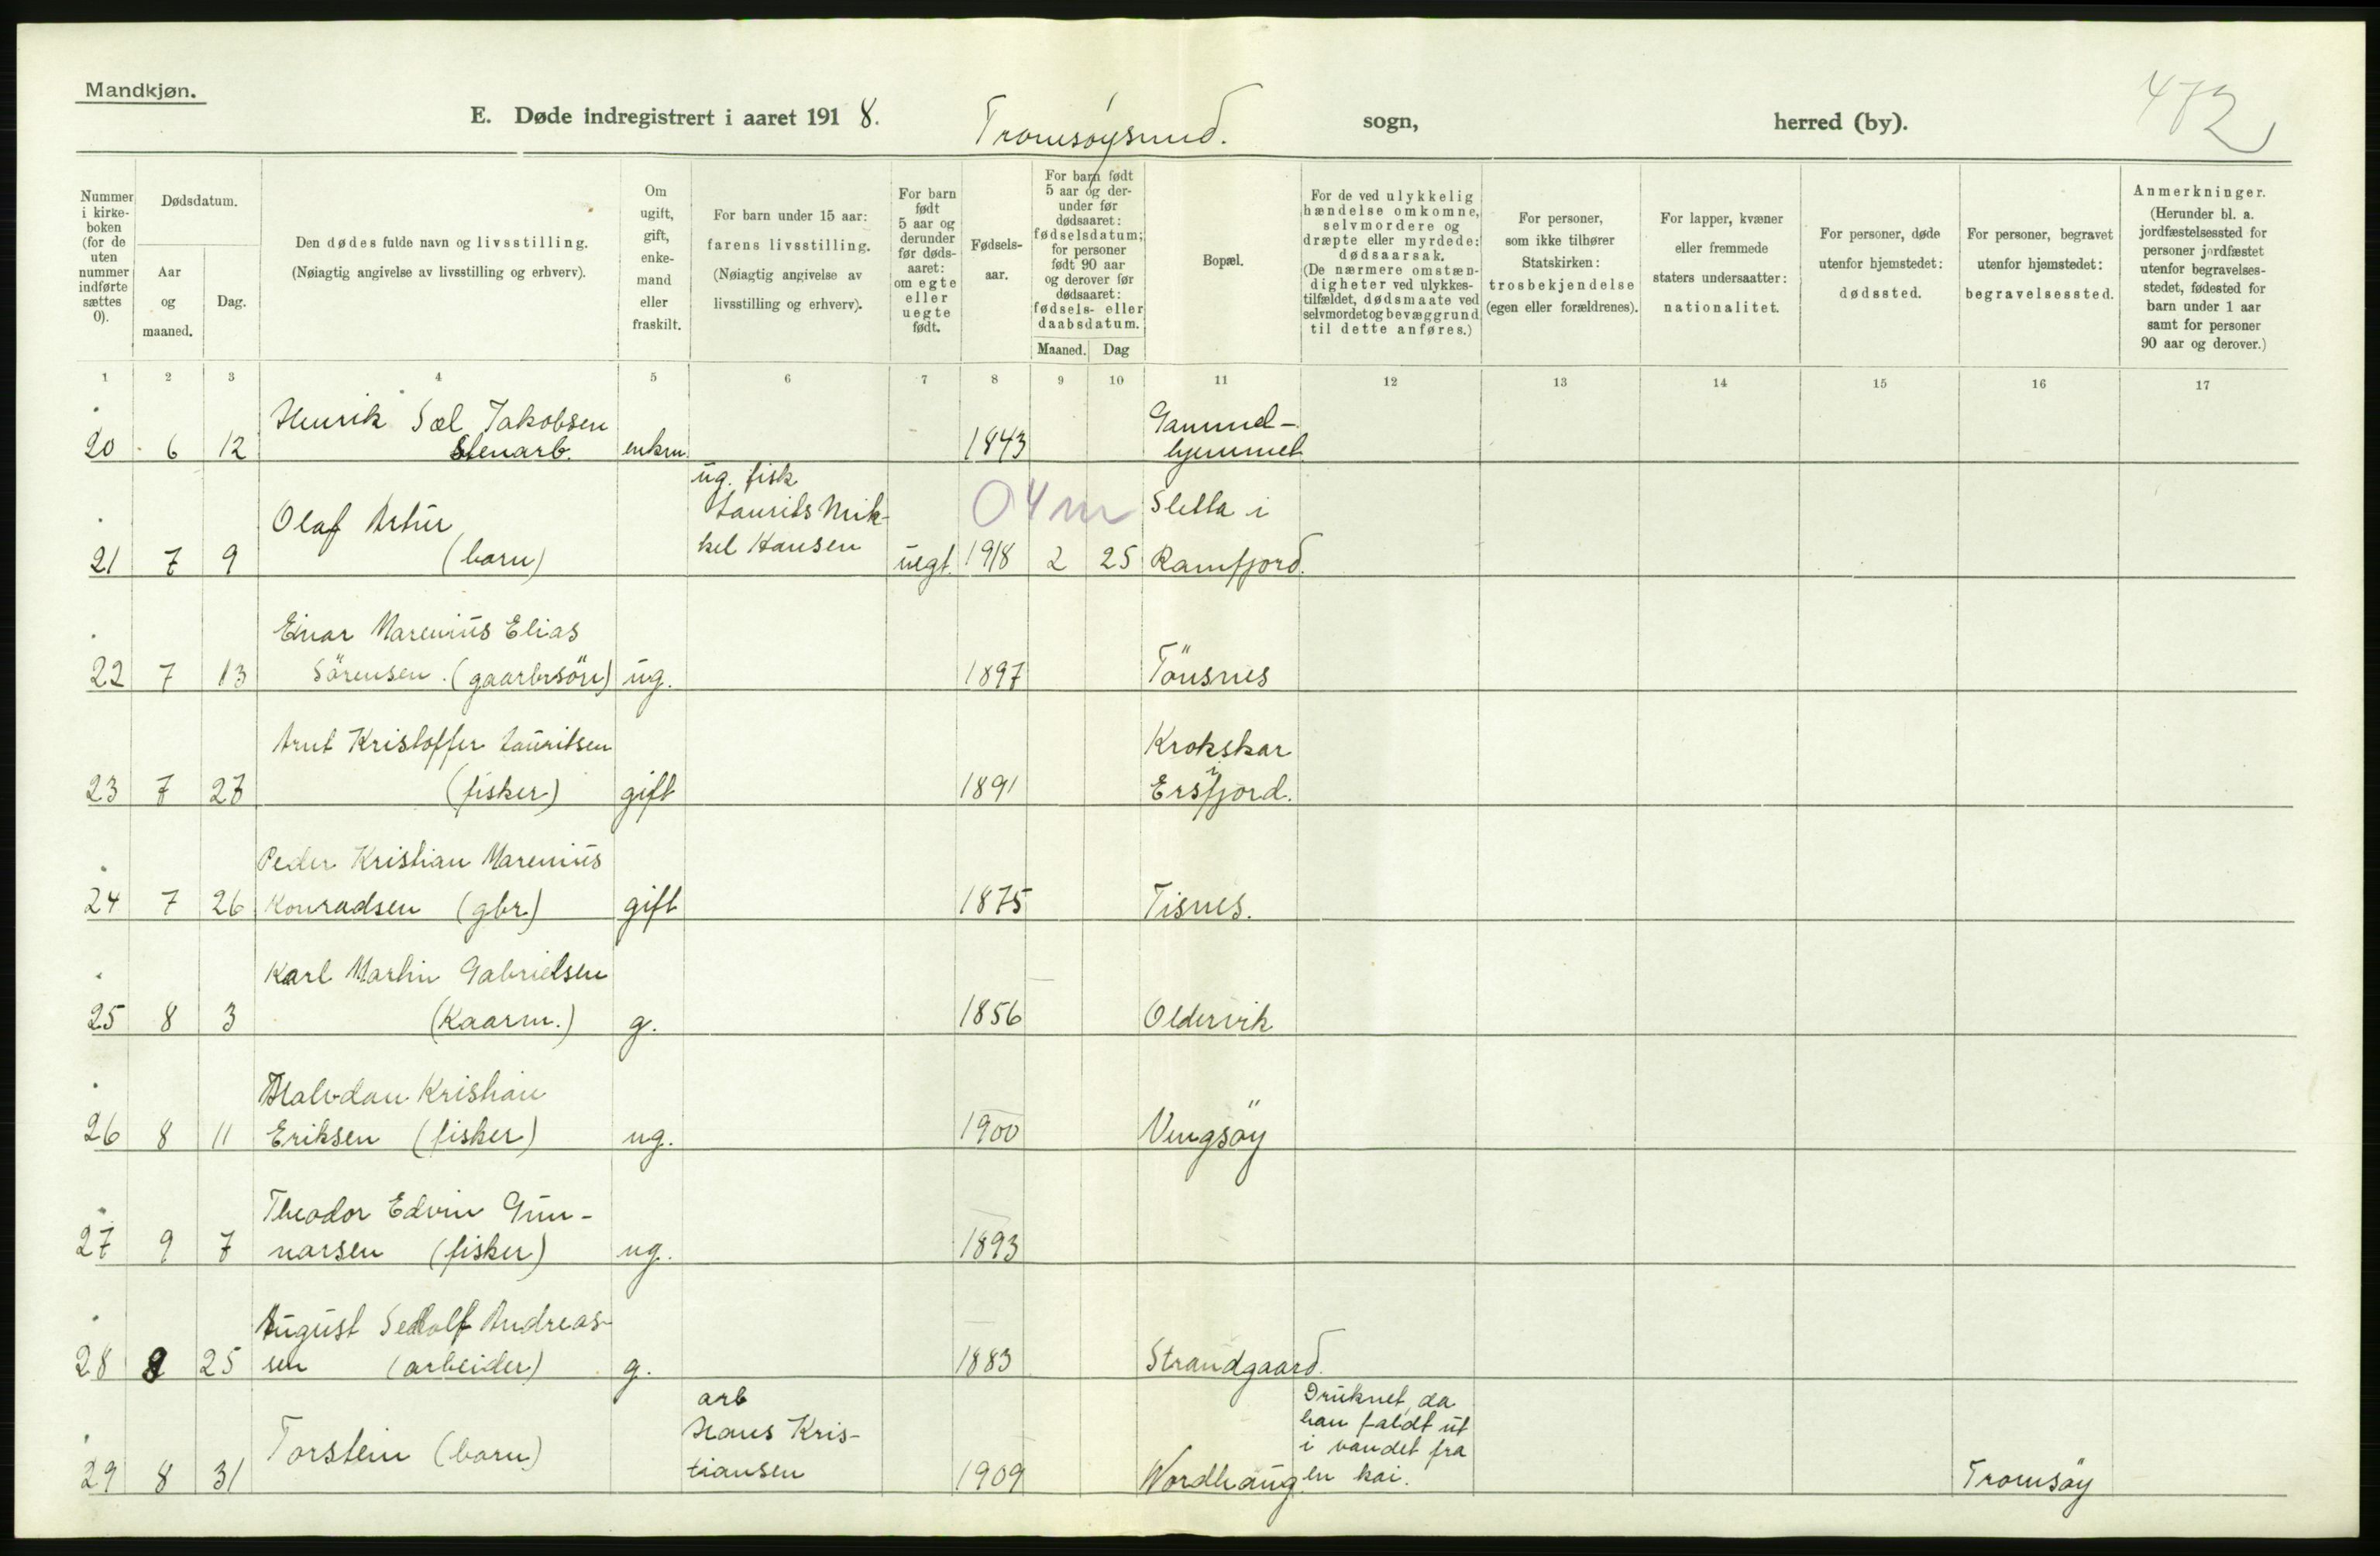 Mandkjøn.
E. Døde indregistrert i aaret 1918. Tromsøysund. sogn, herred (by). 472
Nummer i kirke-boken (for de uten nummer indførte sættes 0).
Dødsdatum.
Aar og maaned.
Dag.
Den dødes fulde navn og livsstilling.
(Nøiagtig angivelse av livsstilling og erhverv).
Om ugift, gift, enke-mand eller fraskilt.
For barn under 15 aar:
farens livsstilling.
(Nøiagtig angivelse av
livsstilling og erhverv).
For barn født 5 aar og derunder før døds-aaret: om egte eller uegte født.
Fødsels-
aar.
For barn født 5 aar og der-under før dødsaaret: fødselsdatum; for personer født 90 aar og derover før dødsaaret: fødsels- eller daabsdatum.
Maaned. Dag
Bopæl.
For de ved ulykkelig hændelse omkomne, selvmordere og dræpte eller myrdede: dødsaarsak.
(De nærmere omstæn-digheter ved ulykkes-tilfældet, dødsmaate ved selvmordet og bevæggrund til dette anføres.)
For personer,
som ikke tilhører
Statskirken:
trosbekjendelse
(egen eller forældrenes).
For lapper, kvæner
eller fremmede
staters undersaatter:
nationalitet.
For personer, døde
utenfor hjemstedet:
dødssted.
For personer, begravet
utenfor hjemstedet:
begravelsessted.
Anmerkninger.
(Herunder bl. a. jordfæstelsessted for personer jordfæstet utenfor begravelses-stedet, fødested for barn under 1 aar samt for personer 90 aar og derover.)
1 2 3 4 5 6 7 8 9 10 11 12 13 14 15 16 17
Henrik Sæl Jakobsen Gammel-
20 6 12 Stenarb. enkm. 1843 hjemmet
ug. fisk
Olaf Artur Laurits Mik- 04m Sletta i
21 7 9 (barn) kel Hansen uegt. 1918 2 25 Ramfjord.
Einar Marenius Elias
22 7 13 Sörensen. (gaarbrsön) ug. 1897 Tönsnes
Arnt Kristoffer Lauritsen Krokskar
23 7 27 (fisker) gift 1891 i Ersfjord.
Peder Kristian Marenius
24 7 26 Konradsen (gbr.) gift 1875 Tisnes.
Karl Martin Gabrielsen
25 8 3 (Kaarm.) g. 1856 Oldervik
Halvdan Kristian
26 8 11 Eriksen (fisker) ug. 1900 Vengsöy
Theodor Edvin Gun-
27 9 7 narsen (fisker) ug. 1893
August Andreas-
28 8 25 sen (arbeider) g. 1883 Strandgaard.
arb Druknet, da
Hans Kris- han faldt ut
Torstein (barn) i vandet fra
29 8 31 tiansen 1909 Nordhaug en kai. Tromsöy